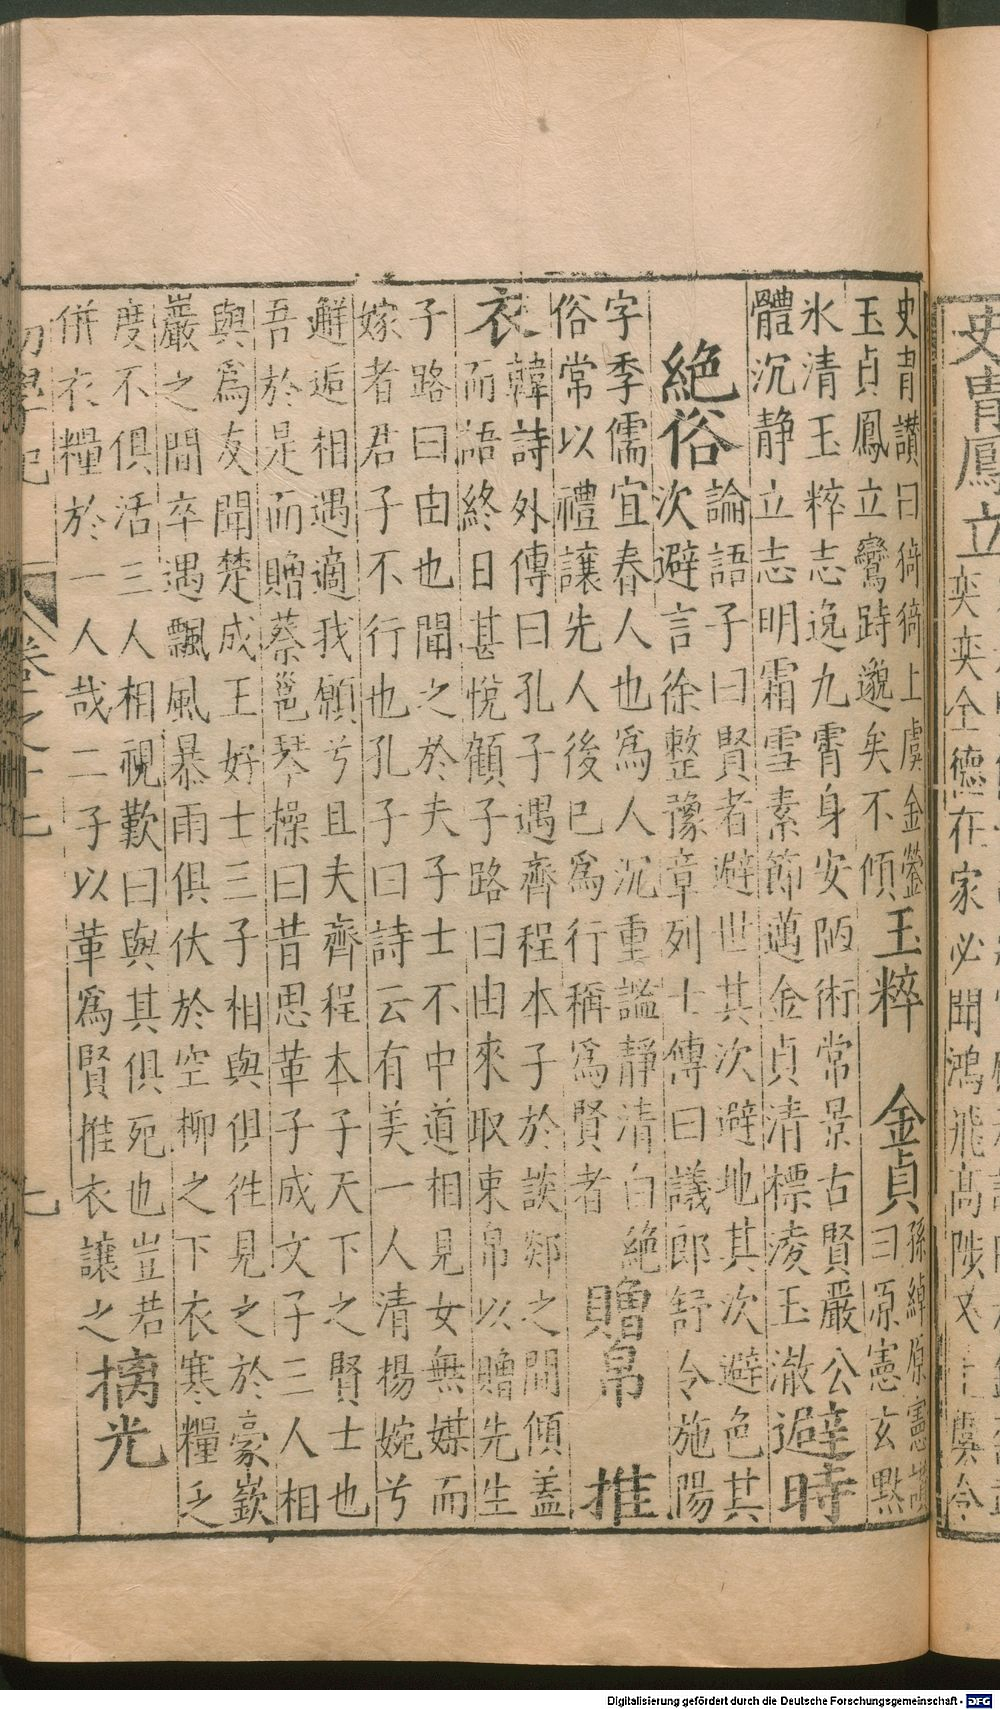 史胄鳳立
奕奕全德在家必聞鴻飛高陟又上虞令
史胄讚曰猗猗上虞金鎣
玉貞鳳立鸞跱邈矣不傾
玉粹 金貞
孫綽原憲讚
曰原憲玄黙
氷清玉粹志逸九霄身安陋術常景古賢嚴公
體沉静立志明霜雪素節邁金貞清標凌玉澈
避時
絶俗
論語子曰賢者避世其次避地其次避色其
次避言徐整豫章列士傳曰議郎舒令施陽
字季儒宜春人也爲人沉重謐靜清白絶
俗常以禮讓先人後已爲行稱爲賢者
贈帛 推
衣
韓詩外傳曰孔子遇齊程本子於談郯之間傾盖
而語終日甚悅顧子路曰由來取束帛以贈先生
子路曰由也聞之於夫子士不中道相見女無媒而
嫁者君子不行也孔子曰詩云有美一人清揚婉兮
邂逅相遇適我願兮且夫齊程本子天下之賢士也
吾於是而贈蔡邕琴操曰昔思革子成文子三人相
與爲友聞楚成王好士三子相與俱徃見之於豪嶔
巖之間卒遇飄風暴雨俱伏於空柳之下衣寒糧乏
度不俱活三人相視歎曰與其俱死也豈若
併衣糧於一人哉二子以革爲賢推衣讓之
摛光
初學記 卷之十七 七
Digitalisierung gefördert durch die Deutsche Forschungsgemeinschaft - DFG